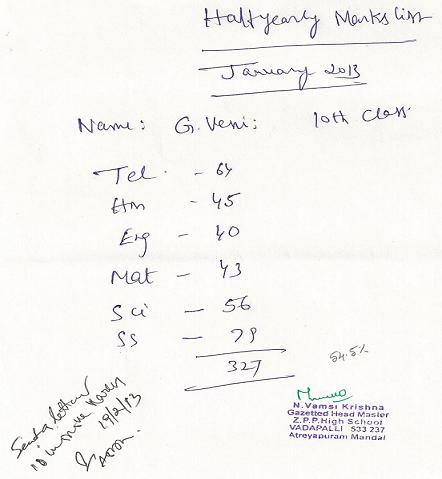 Half yearly Marks List
January 2013
Name: G. Veni: 10th Class.
Tel. - 64
Hin - 45
Eng - 40
Mat - 43
Sci - 56
SS - 79
327
54.5%
N.Vamsi Krishna
Gazetted Head Master
Z.P.P.High School
VADAPALLI 533 237
Atreyapuram Mandal
19/2/13